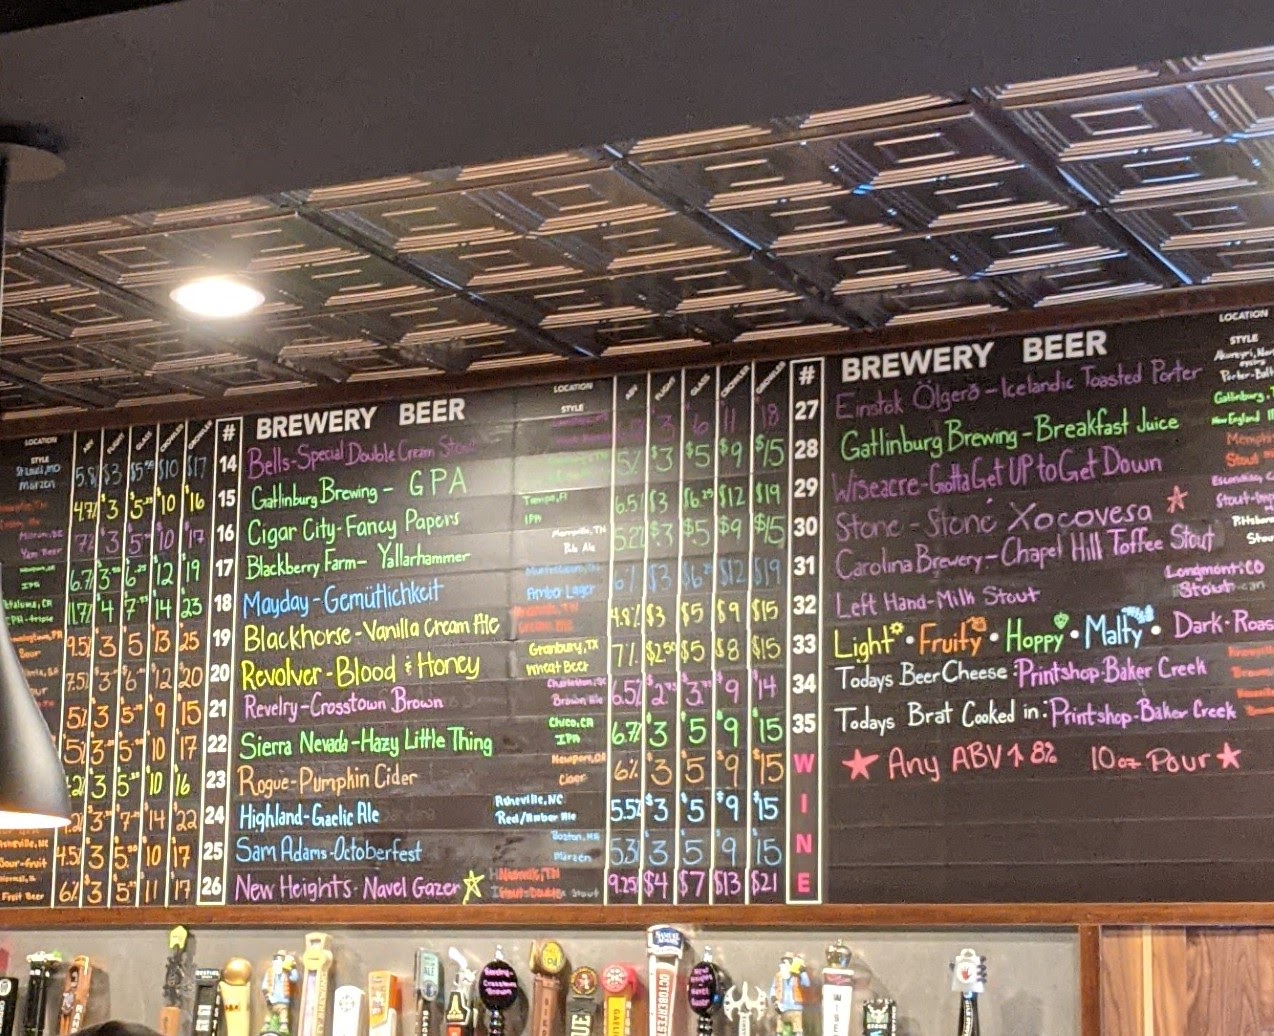 LOCATION
STYLE
ABV FLIGHT GLASS CROWLER GROWLER
St Louis, MO
Marzen
5.8% $3 $5 $10 $17
4.7% $3 $5 $10 $16
Yam Beer
7% $3 $5 $10 $17
IPA
6.7% $3 $6 $12 $19
Petaluma, CA
IPA-triple
11.7% $4 $7 $14 $23
Sour
9.5% 3 5 13 25
7.5% 3 6 12 20
5% 3 5 9 15
5% 3 5 10 17
3 5 10 16
3 7 14 22
Asheville, NC
Sour-fruit
4.5% 3 5 10 17
Fruit Beer
6% 3 5 11 17
# BREWERY BEER
14 Bells-Special Double Cream Stout
15 Gatlinburg Brewing - GPA
16 Cigar City-Fancy Papers
17 Blackberry Farm- Yallarhammer
18 Mayday-Gemütlichkeit
19 Blackhorse-Vanilla Cream Ale
20 Revolver-Blood & Honey
21 Revelry-Crosstown Brown
22 Sierra Nevada-Hazy Little Thing
23 Rogue-Pumpkin Cider
24 Highland-Gaelic Ale
25 Sam Adams-Octoberfest
26 New Heights-Navel Gazer
LOCATION
STYLE
ABV FLIGHT GLASS CROWLER GROWLER
3 6 11 18
5% $3 $5 $9 $15
Tampa, Fl
IPA
6.5% $3 $6.25 $12 $19
Maryville, TN
Pale Ale
5.2% $3 $5 $9 $15
Murfreesboro, TN
Amber Lager
6% $3 $6 $12 $19
Cream Ale
4.8% $3 $5 $9 $15
Granbury, TX
Wheat Beer
7% $2.50 $5 $8 $15
Charleston, SC
Brown Ale
6.5% $2.75 $3.75 $9 $14
Chico, CA
IPA
6.7% $3 $5 $9 $15
Newport, OR
Cider
6% $3 $5 $9 $15
Asheville, NC
Red/Amber Ale
5.5% $3 $5 $9 $15
Boston, MA
Marzen
5.3% 3 5 9 15
Nashville, TN
Stout
9.25% $4 $7 $13 $21
# BREWERY BEER
27 Einstok Ölgerð-Icelandic Toasted Porter
28 Gatlinburg Brewing-Breakfast Juice
29 Wiseacre-Gotta Get UP to Get Down
30 Stone - Stone Xocovesa
31 Carolina Brewery-Chapel Hill Toffee Stout
32 Left Hand-Milk Stout
33 Light • Fruity • Hoppy • Malty • Dark-Roas
34 Todays Beer Cheese: Printshop-Baker Creek
35 Todays Brat Cooked in: Printshop-Baker Creek
Any ABV ↑ 8% 10oz Pour
W
I
N
E
LOCATION
STYLE
Akureyri, Nor
Porter-Balt
Gatlinburg, T
New England I
Memphis
Stout
Escondido, C
Stout-Imp
Pittsboro
Stou
Longmont, CO
Stout
SAMUEL ADAMS
OCTOBERFEST
Revelry-
Crosstown
Brown
WISE